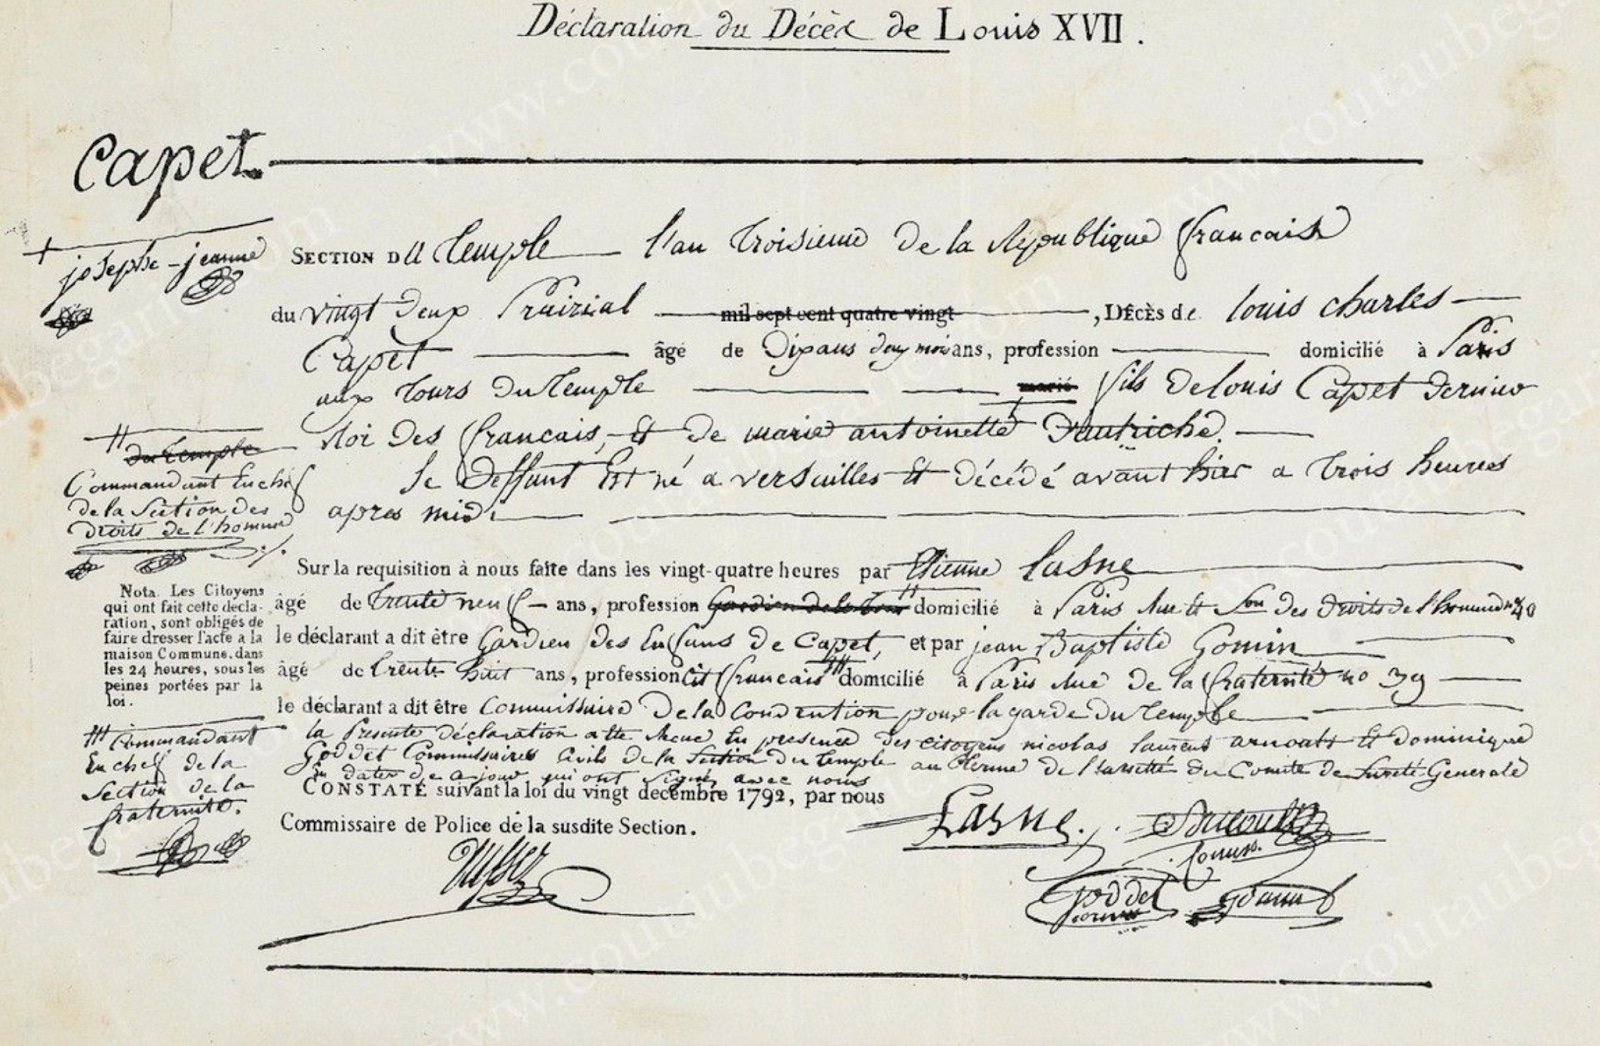 Déclaration du Décès de Louis XVII.
Capet
+ josephe-jeanne
SECTION DU Temple l'an troisieme de la République francaise
du vingt deux Prairial mil sept cent quatre vingt , DÉCÈS de louis charles
Capet âgé de Dix ans deux mois ans, profession domicilié à Paris
aux tours du temple marié fils de louis Capet dernier
Roi des francais, et de marie antoinette + Dautriche.
le deffunt Est né a versailles Et décédé avant hier a trois heures
apres midi
# du temple
Commandant En chef
de la Section des
Droits de l'homme
Sur la requisition à nous faite dans les vingt-quatre heures par Etienne Lasne
âgé de trente neuf ans, profession Gardien de la tour # domicilié à Paris Rue Et Son des Droits de l'homme no 48
le déclarant a dit être Gardien des Enfans de Capet, et par jean Baptiste Gomin
âgé de trente huit ans, profession Cit francais domicilié à Paris Rue de la fraternité no 39
le déclarant a dit être Commissaire De la Convention pour la garde du temple
la Presente déclaration a été En presence des citoyens nicolas laurent arnoult Et dominique
Goddet Commissaires Civils de la Section du temple au terme de l'arrêté du Comité de Sureté Generale
En datte de ce jour qui ont signé avec nous
CONSTATÉ suivant la loi du vingt decembre 1792, par nous
Commissaire de Police de la susdite Section.
Nota. Les Citoyens
qui ont fait cette décla-
ration, sont obligés de
faire dresser l'acte a la
maison Commune, dans
les 24 heures, sous les
peines portées par la
loi.
Commandant
En chef de la
Section de la
fraternité.
Lasne.
Goddet
www.coutaubegarie.com